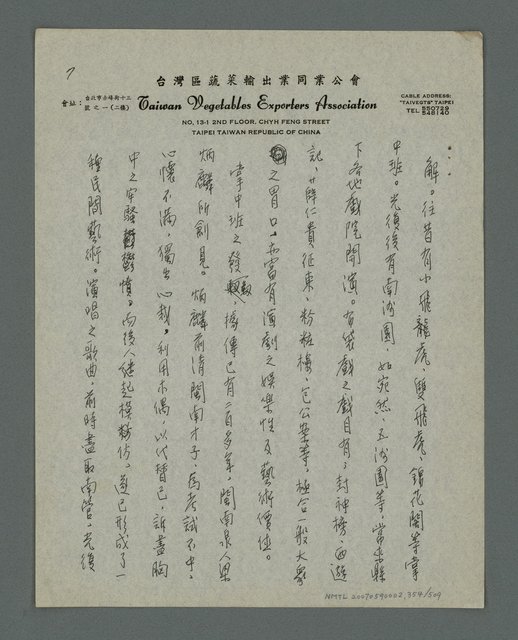 7
台灣區蔬菜輸出業同業公會
會址：台北市赤峰街十三號之一(二樓)
Taiwan Vegetables Exporters Association
NO, 13-1 2ND FLOOR, CHYH FENG STREET
TAIPEI TAIWAN REPUBLIC OF CHINA
CABLE ADDRESS:
"TAIVEGTS" TAIPEI
TEL 550729
548140
解。往昔有小飛龍虎、雙飛虎、錦花閣等掌
中班。光復後有南洲園、如宛然、五洲園等，常來縣
下各地戲院開演。布袋戲之戲目有，封神榜、西遊
記、廿薛仁貴征東、粉粧樓、包公案等，極合一般大衆
之胃口。亦富有演劇之娛樂性及藝術價值。
掌中班之發㲉，據傳已有二百多年。閩南泉人梁
炳麟所創見。炳麟前清閩南才子，爲考試不中，
心懷不滿，獨出心裁。利用木偶，以代替己，訴盡胸
中之牢騷鬱憤。而後人繼起模仿。遂已形成了一
種民間藝術。演唱之歌曲，前時盡取南管，光復
NMTL 20070590002, 354/509